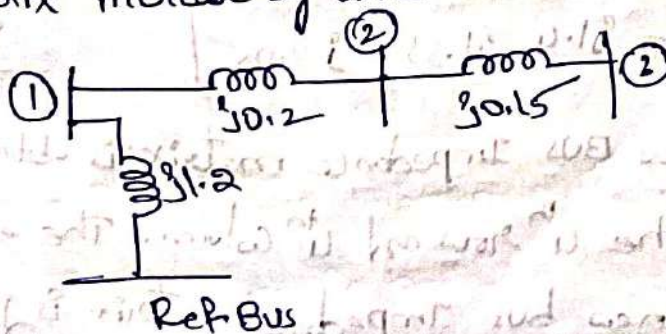 ②
① j0.2 j0.15 ③
j1.2
Ref Bus